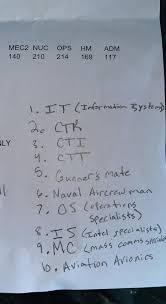 MEC2 NUC OPS HM ADM
140 210 214 169 117
1. IT (Information Systems)
2. CTR
NLY 3. CTI
4. CTT
5. Gunner's mate
6. Naval Aircrewman
7. OS (operations
specialists)
8. IS (Intel specialists)
9. MC (mass comms specialist
10. Aviation Avionics